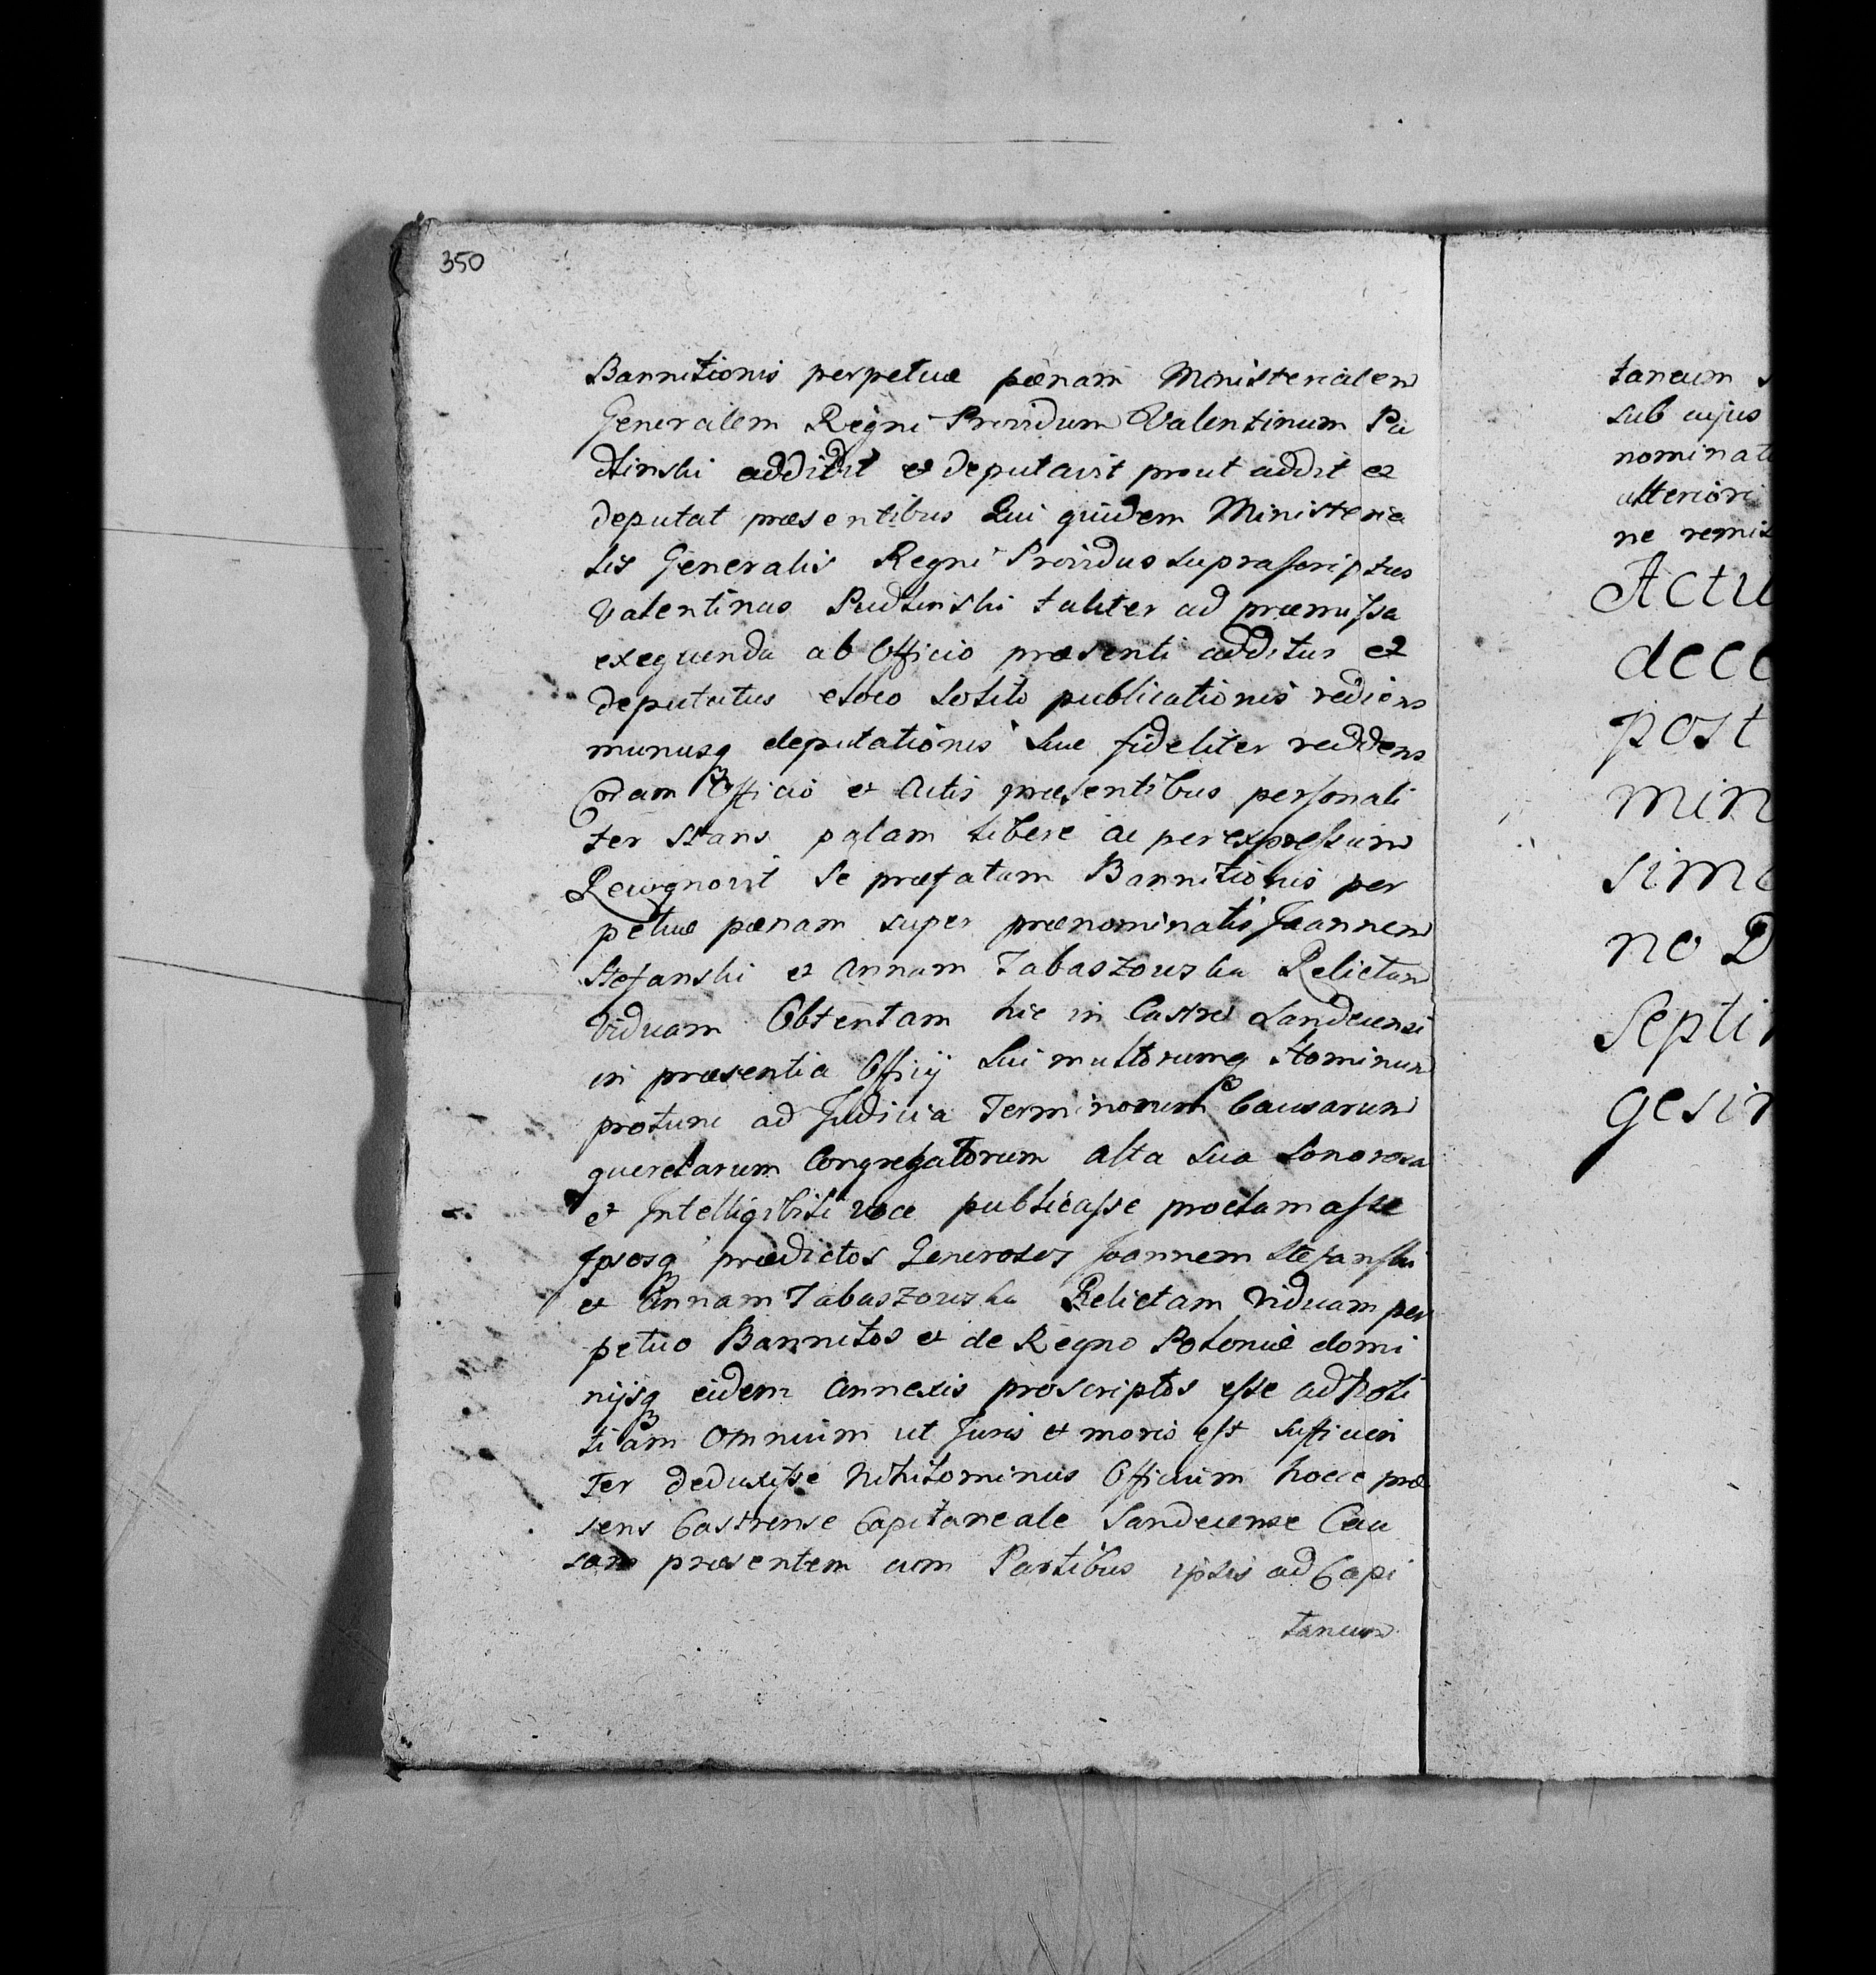 350
Bannitionis perpetuæ pænam Ministerialem
Generalem Regni Providum Valentinum Pu
dlinski addidit et deputavit prout addit et
deputat præsentibus Qui quidem Ministeria
lis Generalis Regni Providus suprascriptus
Valentinus Pudlinski taliter ad præmissa
exequenda ab Officio præsenti additus et
deputatus eloco solito publicationis rediens
munusq deputationis suæ fideliter reddens
Coram Officio et Actis præsentibus personali
ter stans palam libere ac per expressum
Recognovit se præfatam Bannitionis per
petuæ pænam super prænominatis Joannem
Stefanski et Annam Tabaszowska Relictam
Viduam Obtentam hic in Castro Sandecensi
in præsentia Officij sui multorumq Hominum
protunc ad Judicia Terminorum Causarum
querelarum Congregatorum alta sua sonorosa
et Intelligibili voce publicasse proclamasse
Ipsosq prædictos Generosos Joannem Stefanski
et Annam Tabaszowska Relictam Viduam per
petuo Bannitos et de Regno Poloniæ domi
nijsq eidem annexis proscriptos esse ad Noti
tiam Omnium ut Juris et moris est sufficien
ter deduxisse Nihilominus Officium hocce præ
sens Castrense Capitaneale Sandecense Cau
sam præsentem cum Partibus ipsis ad Capi
taneum
taneum
sub cujus
nominat
ulteriori
ne remis
Actu
dece
post
min
sim
no D
Septi
gesi